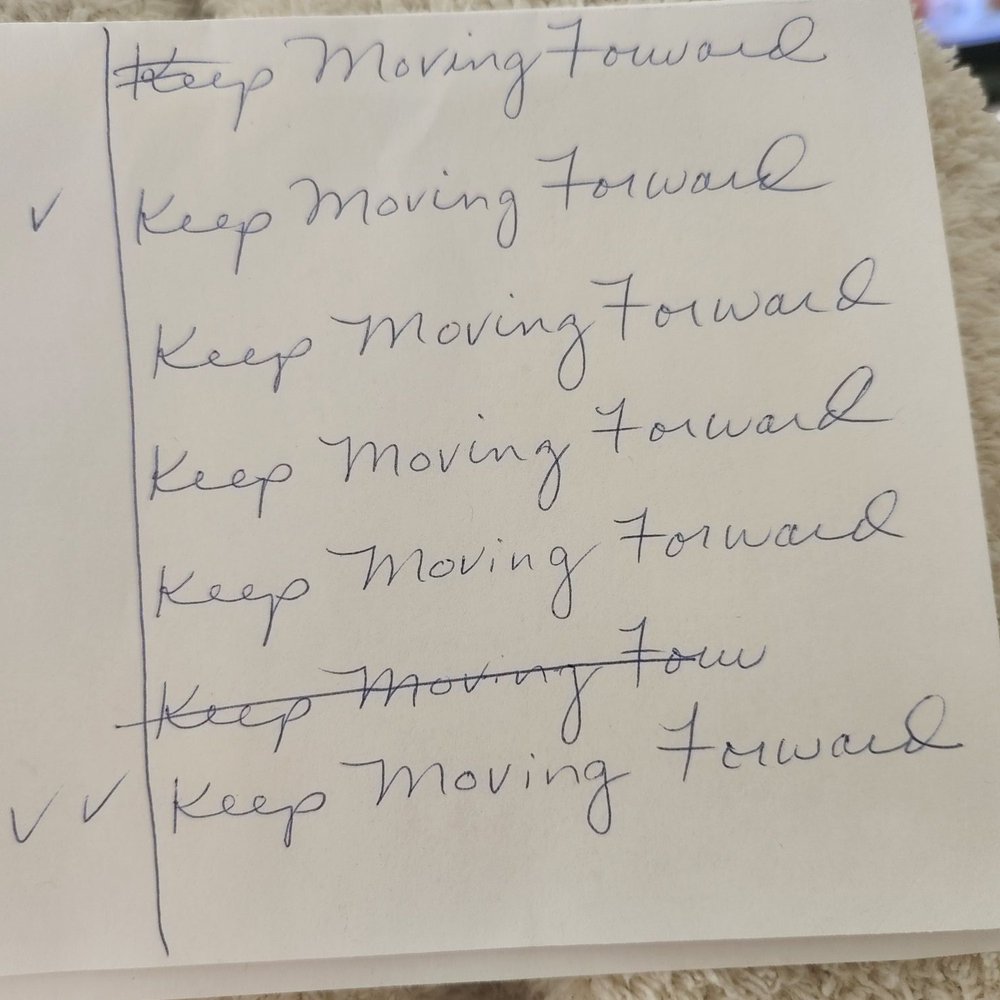 Keep Moving Forward
✓ Keep Moving Forward
Keep Moving Forward
Keep Moving Forward
Keep Moving Forward
Keep Moving Forw
✓ ✓ Keep Moving Forward